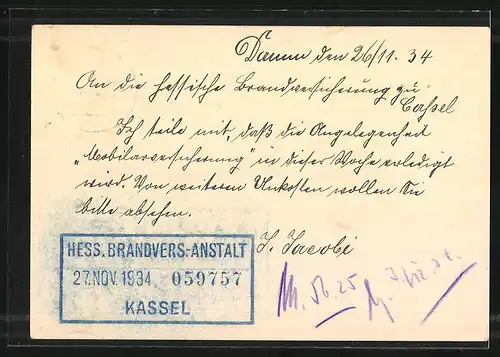 Damm den 26/11. 34
An die hessische Brandversicherung zu
Cassel
Ich teile mit, daß die Angelegenheit
„Mobilarversicherung" in dieser Woche erledigt
wird. Von weiteren Unkosten wollen Sie
bitte absehen.
J. Jacobi
HESS. BRANDVERS.-ANSTALT
27. NOV. 1934. 059757
KASSEL